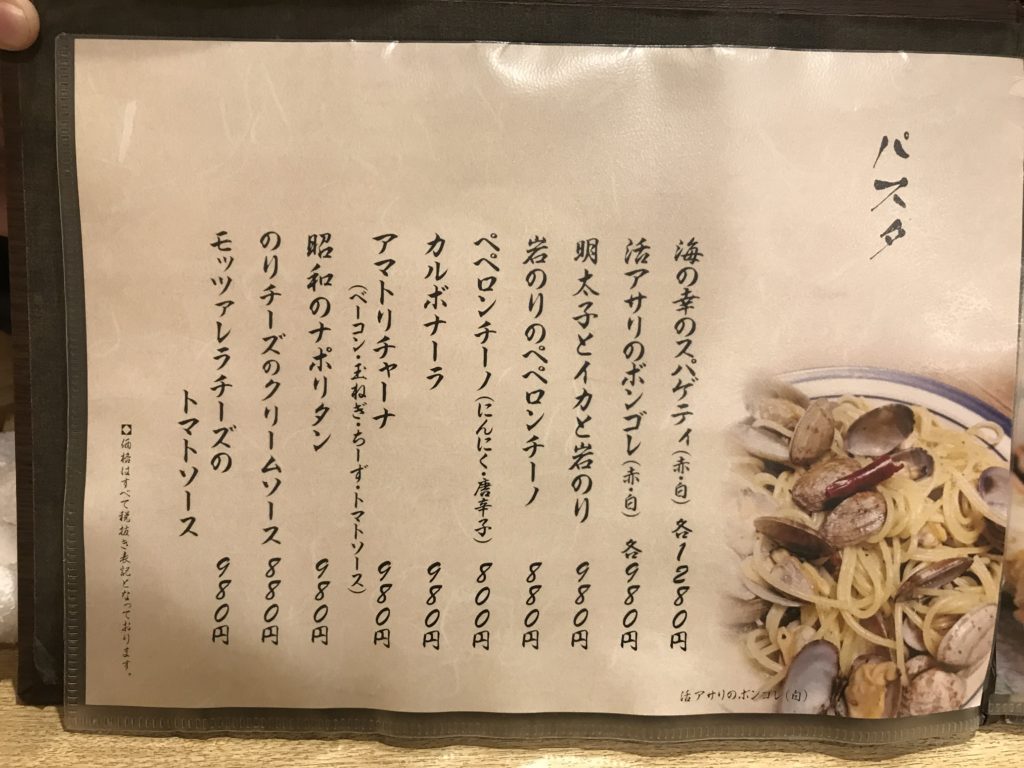 パスタ
海の幸のスパゲティ(赤・白) 各1280円
活アサリのボンゴレ(赤・白) 各980円
明太子とイカと岩のり 980円
岩のりのペペロンチーノ 880円
ペペロンチーノ(にんにく・唐辛子) 800円
カルボナーラ 980円
アマトリチャーナ 980円
(ベーコン・玉ねぎ・ちーず・トマトソース)
昭和のナポリタン 980円
のりチーズのクリームソース 880円
モッツァレラチーズの 980円
トマトソース
◆価格はすべて税抜き表記となっております。
活アサリのボンゴレ(白)